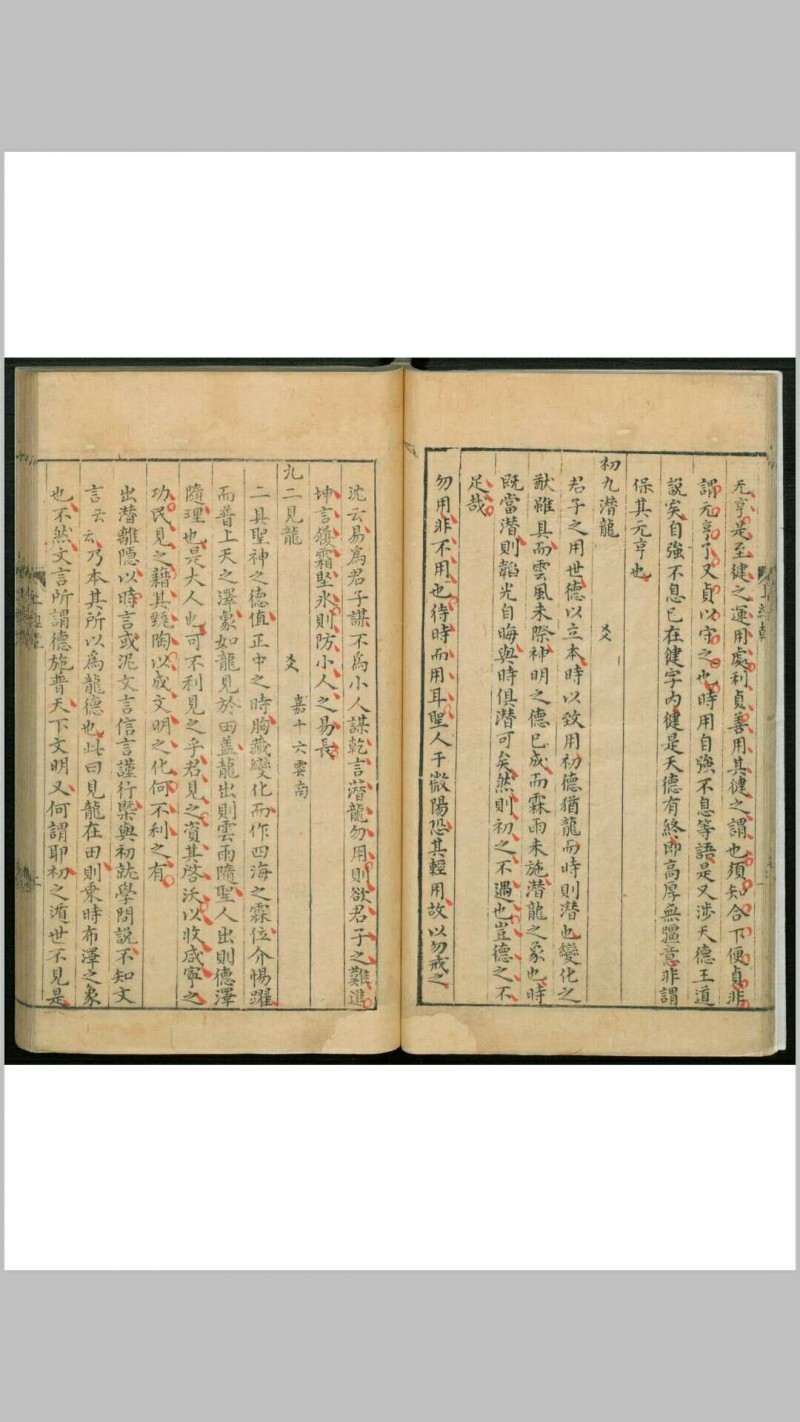 元亨是至健之運用處利貞善用其健之謂也須知合下便貞非
謂元亨了又貞以守之也時用自強不息等語是又涉天德王道
說矣自強不息已在健字內健是天德有終即高厚無疆意非謂
保其元亨也
初九潛龍 爻
君子之用世德以立本時以致用初德猶龍而時則潛也變化之
猷雖具而雲風未際神明之德已成而霖雨未施潛龍之象也時
既當潛則韜光自晦與時俱潛可矣然則初之不遇也豈德之不
足哉
勿用非不用也待時而用耳聖人于微陽恐其輕用故以勿戒之
沈云易為君子謀不為小人謀乾言潛龍勿用則欲君子之難進
坤言履霜堅氷則防小人之易長
九二見龍 爻 嘉十六雲南
二具聖神之德值正中之時胸藏變化而作四海之霖位介惕躍
而普上天之澤象如龍見於田盖龍出則雲雨隨聖人出則德澤
隨理也是大人也可不利見之乎君見之資其啓沃以收咸寧之
功民見之藉其甄陶以成文明之化何不利之有
出潛離隱以時言或泥文言信言謹行槩與初就學問說不知文
言云云乃本其所以為龍德也此曰見龍在田則乘時布澤之象
也不然文言所謂德施普天下文明又何謂耶初之遁世不見是